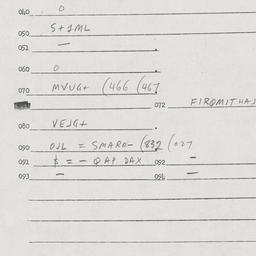 040 0
050 S+1ML
051 —
060 0
070 MVUG+ (466 (467
072 FIRQMITHAJ
080 VEJG+
090 OJL = SMARO- (832 (027
091 $ = - QAP DAX 092 —
093 — 096 —